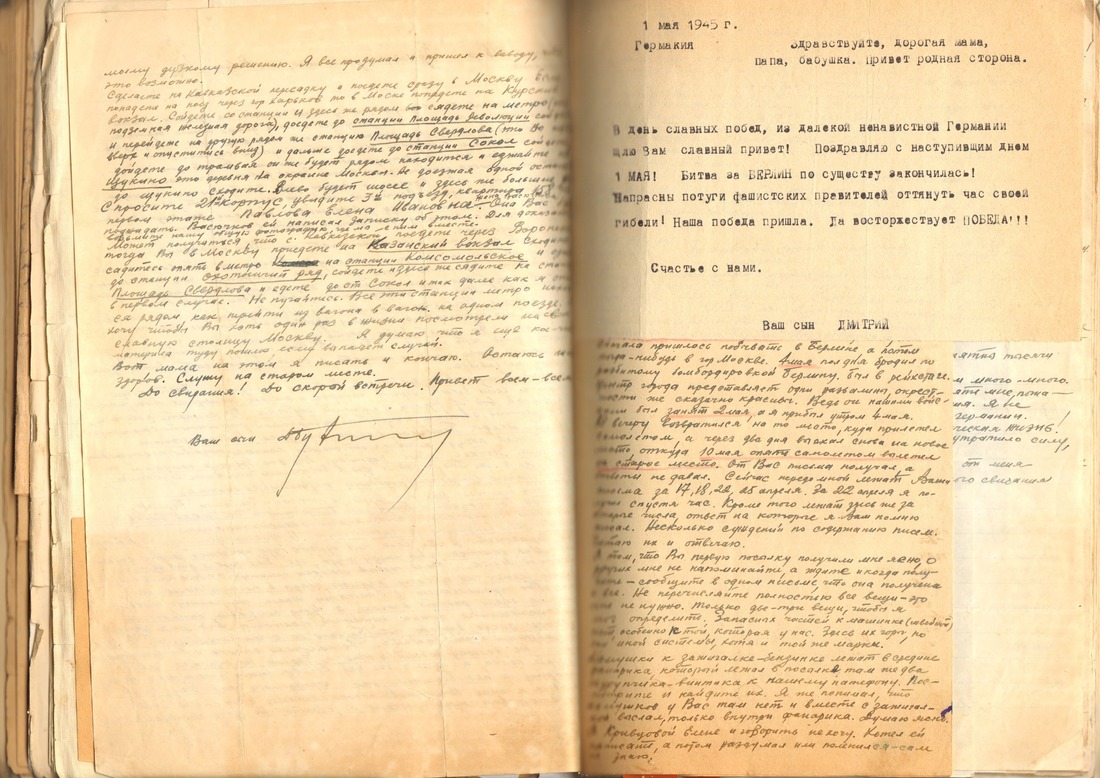 моему дерзкому решению. Я все продумал и пришел к выводу, что
это возможно.
Сделаете на Кавказской пересадку и поедете сразу в Москву
попадете на поезд через гор Харьков то в Москве попадете на Курский
вокзал. Сойдете со станции и здесь же рядом сядете на метро
подземная железная дорога), доедете до станции Площадь Революции
и перейдете на другую рядом же станцию Площадь Свердлова (это
вверх и опуститесь вниз) и дальше доедете до станции Сокол
дойдете до трамвая он же будет рядом находится и езжайте
Щукино это деревня на окраине Москвы. Не доезжая одной
до Щукино сходите. Влево будет шоссе и здесь же большие
Спросите 21й корпус, увидите 3й подъезд, квартира
первом этаже Павлова Елена Ивановна - Она Вас
подождать. Васючков ей написал записку об этом. Для
нашу общую фотографию, где мы с ним вместе.
Может получиться что с Кавказской поедете через
тогда Вы в Москву приедете на Казанский вокзал
садитесь опять в метро на станции Комсомольское и
до станции Охотничий ряд, сойдете и здесь же сядите на
Площадь Свердлова и едете до ст Сокол и так далее как и
в первом случае. Не пугайтесь. Все эти станции метро
ся рядом как перейти из вагона в вагон на одном поезде.
хочу чтобы Вы хоть один раз в жизни посмотрели на
славную столицу Москву. Я думаю, что я еще
материала туда пошлю, если выпадет случай.
Вот мама на этом я писать и кончаю. Остаюсь
здоров. Служу на старом месте.
До свидания! До скорой встречи. Привет всем-всем
Ваш сын
1 мая 1945 г.
Германия Здравствуйте, дорогая мама,
папа, бабушка. Привет родная сторона.
В день славных побед, из далекой ненавистной Германии
шлю Вам славный привет! Поздравляю с наступившим днем
1 МАЯ! Битва за БЕРЛИН по существу закончилась!
Напрасны потуги фашистских правителей оттянуть час своей
гибели! Наша победа пришла. Да восторжествует ПОБЕДА!!!
Счастье с нами.
Ваш сын ДМИТРИЙ
пришлось побывать в Берлине а потом
-нибудь в гор Москве. 4 мая пол дня бродил по
разбитому бомбардировкой Берлину. Был в рейхстаге.
Центр города представляет одни развалины, окрест-
ности же сказочно красивы. Ведь он нашими вой-
был занят 2 мая, а я прибыл утром 4 мая.
К вечеру возвратился на то место, куда прилетел
самолетом, а через два дня выехал снова на новое
место, откуда 10 мая опять самолетом вылетел
на старое место. От Вас письма получал, а
ответы не давал. Сейчас передо мной лежат Ваши
письма за 17, 18, 22, 25 апреля. За 22 апреля я по-
спустя час. Кроме того лежат здесь же за
числа, ответ на которые я Вам помню
Несколько суждений по содержанию писем.
Читаю их и отвечаю.
О том, что Вы первую посылку получили мне ясно, о
других мне не напоминайте, а ждите и когда полу-
чите - сообщите в одном письме что она получена
и все. Не перечисляйте полностью все вещи - это
мне не нужно. Только две-три вещи, чтобы я
мог определить. Запасных частей к машинке (швейной)
нет, особенно к той, которая у нас. Здесь их горы но
иной системы, хотя и той же марки.
Камушки к зажигалке-бензинке лежат в средине
фонарика, который лежал в посылке там же два
винтика к нашему патефону. Пос-
мотрите и найдите их. Я же понимал, что
камушков у Вас там нет и вместе с зажигал-
кой выслал, только внутри фонарика. Думаю ясно.
О Кривцовой Елене и говорить не хочу. Хотел ей
написать, а потом раздумал или поленился - сам
не знаю.
тысячи
много много.
мне, пома-
Я не
Германии.
жизнь!
утратило силу,
от меня
свидания